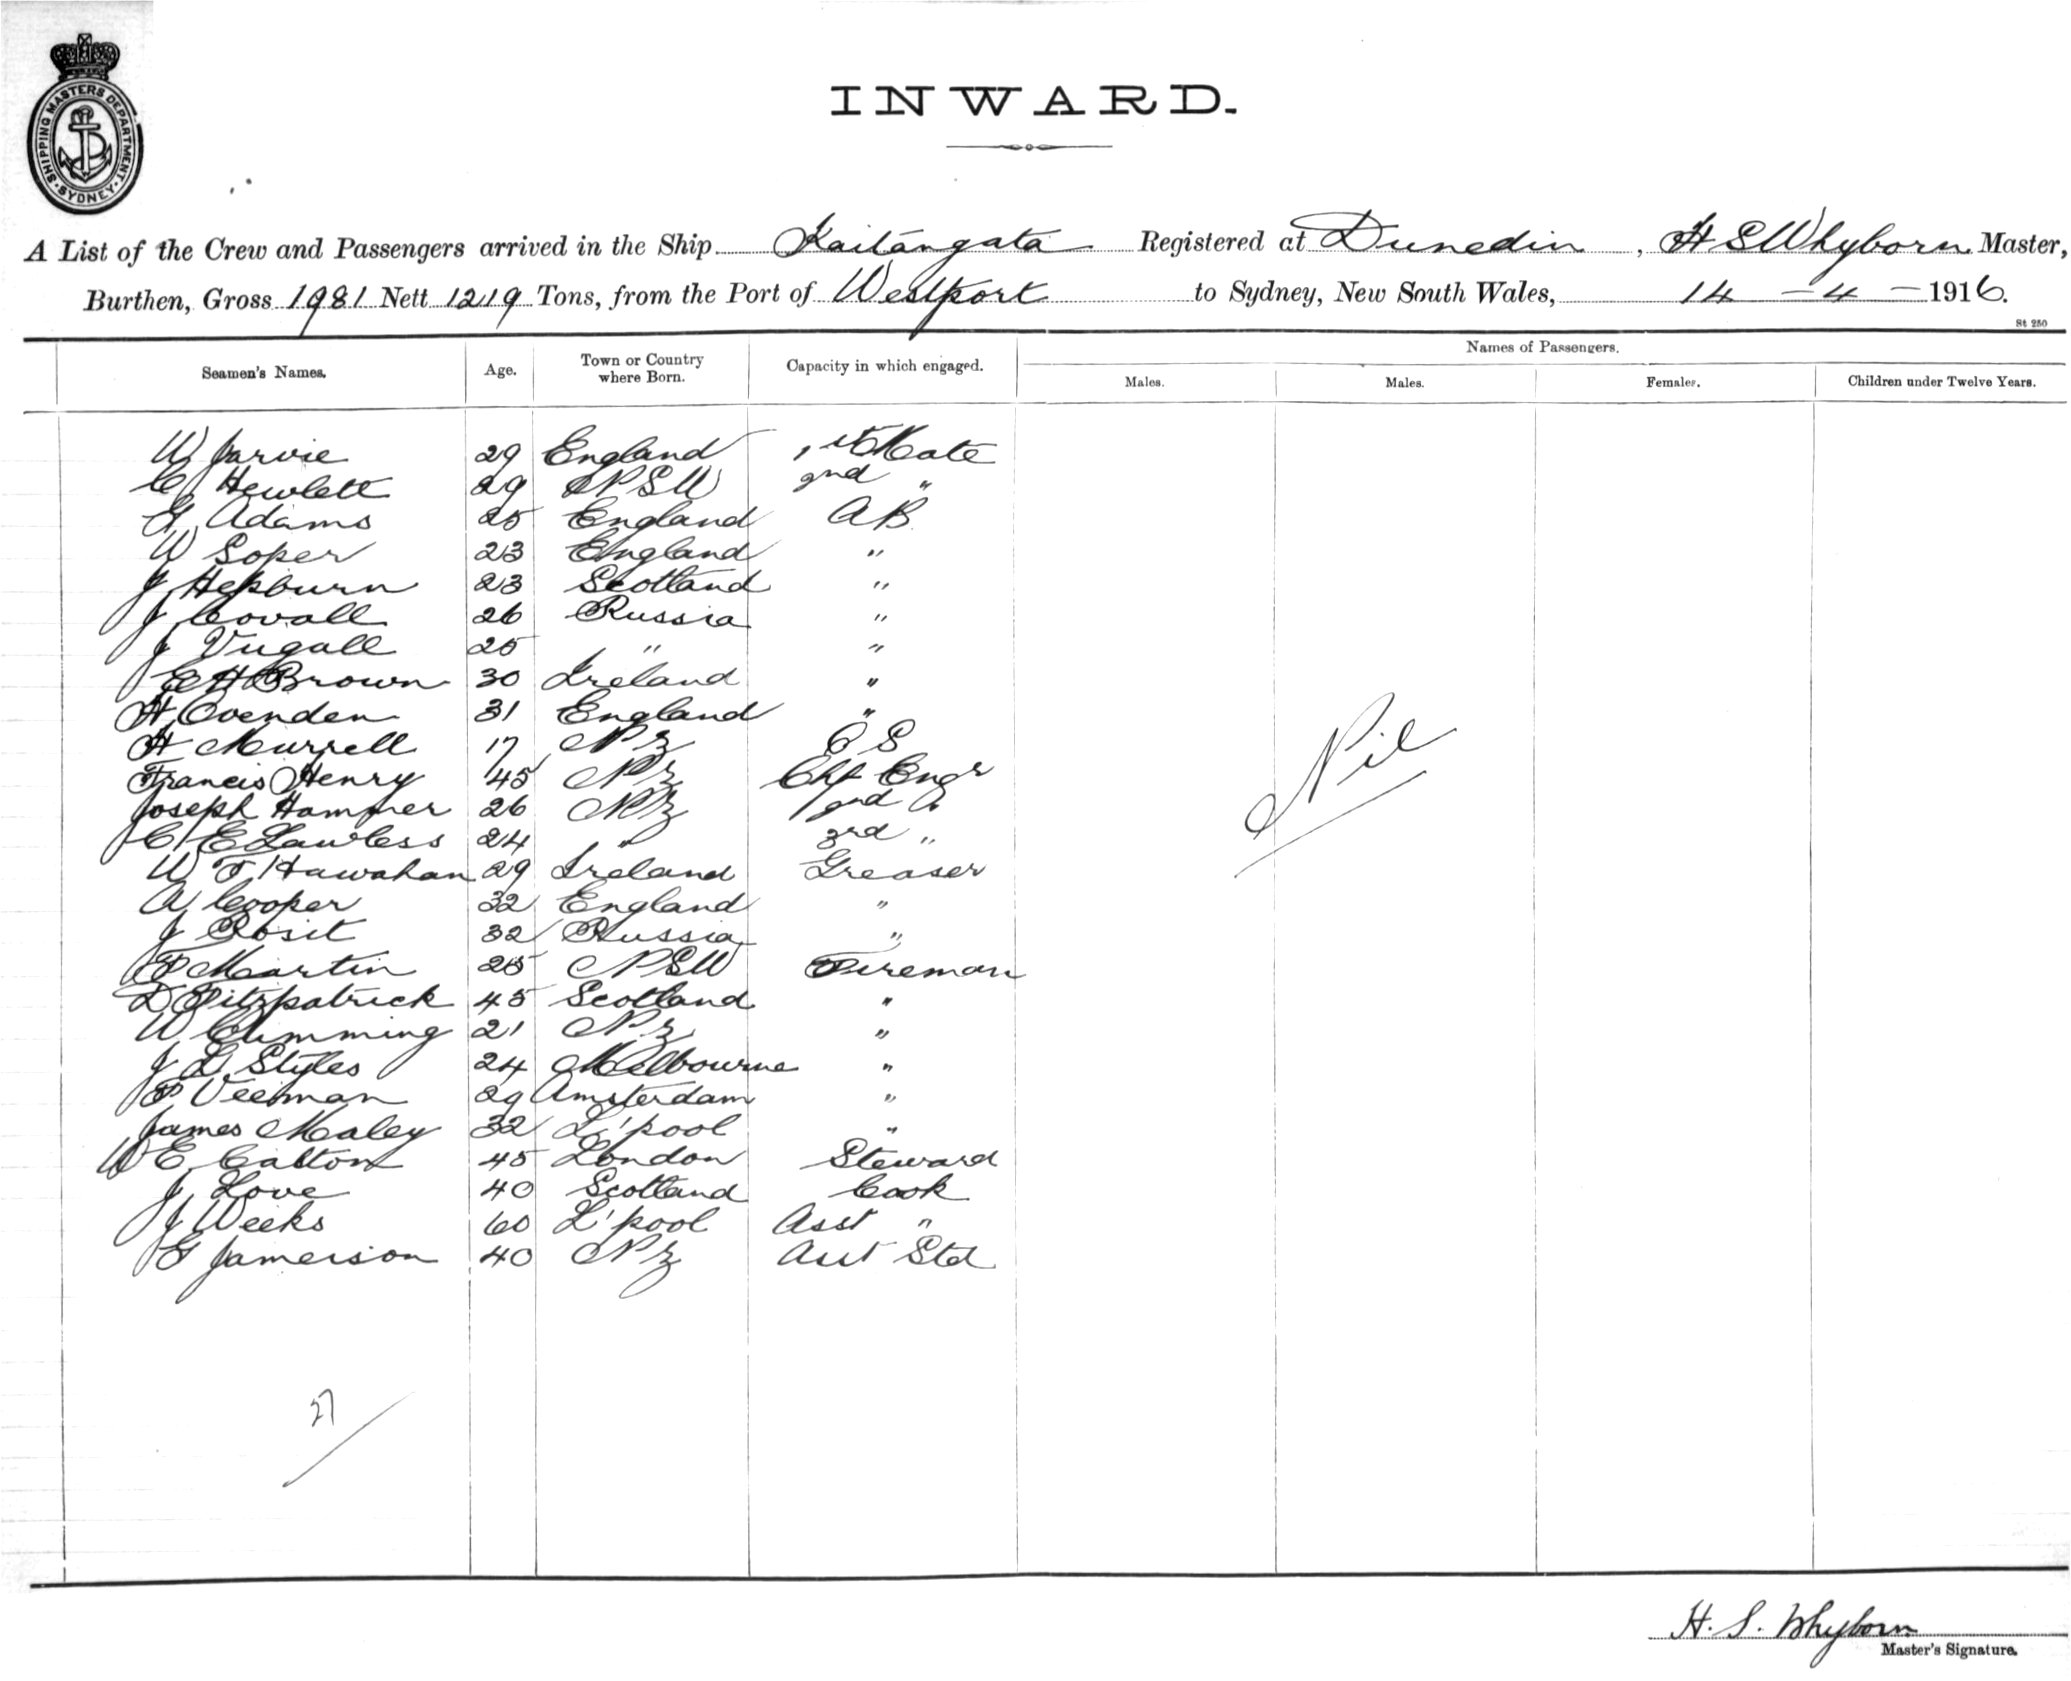 SHIPPING MASTERS DEPARTMENT · SYDNEY ·
INWARD.
A List of the Crew and Passengers arrived in the Ship Kaitangata Registered at Dunedin, H S Whyborn Master,
Burthen, Gross 1981 Nett 1219 Tons, from the Port of Westport to Sydney, New South Wales, 14 - 4 - 1916.
St 250
Seamen's Names. Age. Town or Country where Born. Capacity in which engaged. Names of Passengers.
Males. Males. Females. Children under Twelve Years.
W Jarvie 29 England 1st Mate
C Hewlett 29 NSW 2nd "
G Adams 25 England AB
W Soper 23 England "
J Hepburn 23 Scotland "
J Covall 26 Russia "
J Vugall 25 " "
E H Brown 30 Ireland "
H Ovenden 31 England "
H Murrell 17 NZ OS
Francis Henry 45 NZ Chf Engr
Joseph Hammer 26 NZ 2nd "
C E Lawless 24 " 3rd "
W F Hawahan 29 Ireland Greaser
A Cooper 32 England "
J Rosit 32 Russia "
P Martin 25 NSW Fireman
D Fitzpatrick 45 Scotland "
W Cumming 21 NZ "
J L Styles 24 Melbourne "
P Veenman 29 Amsterdam "
James Maley 32 L'pool "
W E Calton 45 London Steward
J Love 40 Scotland Cook
J Weeks 60 L'pool Asst "
G Jamerson 40 NZ Asst Std
Nil
27
H. S. Whyborn
Master's Signature.